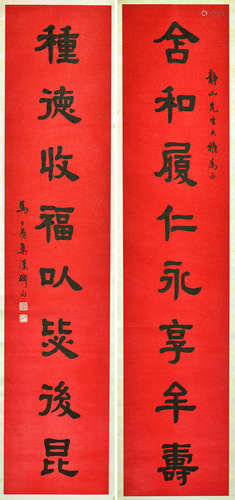 含和履仁永享年壽
靜山先生大雅正
種德收福以毖後昆
馬公愚集漢碑句